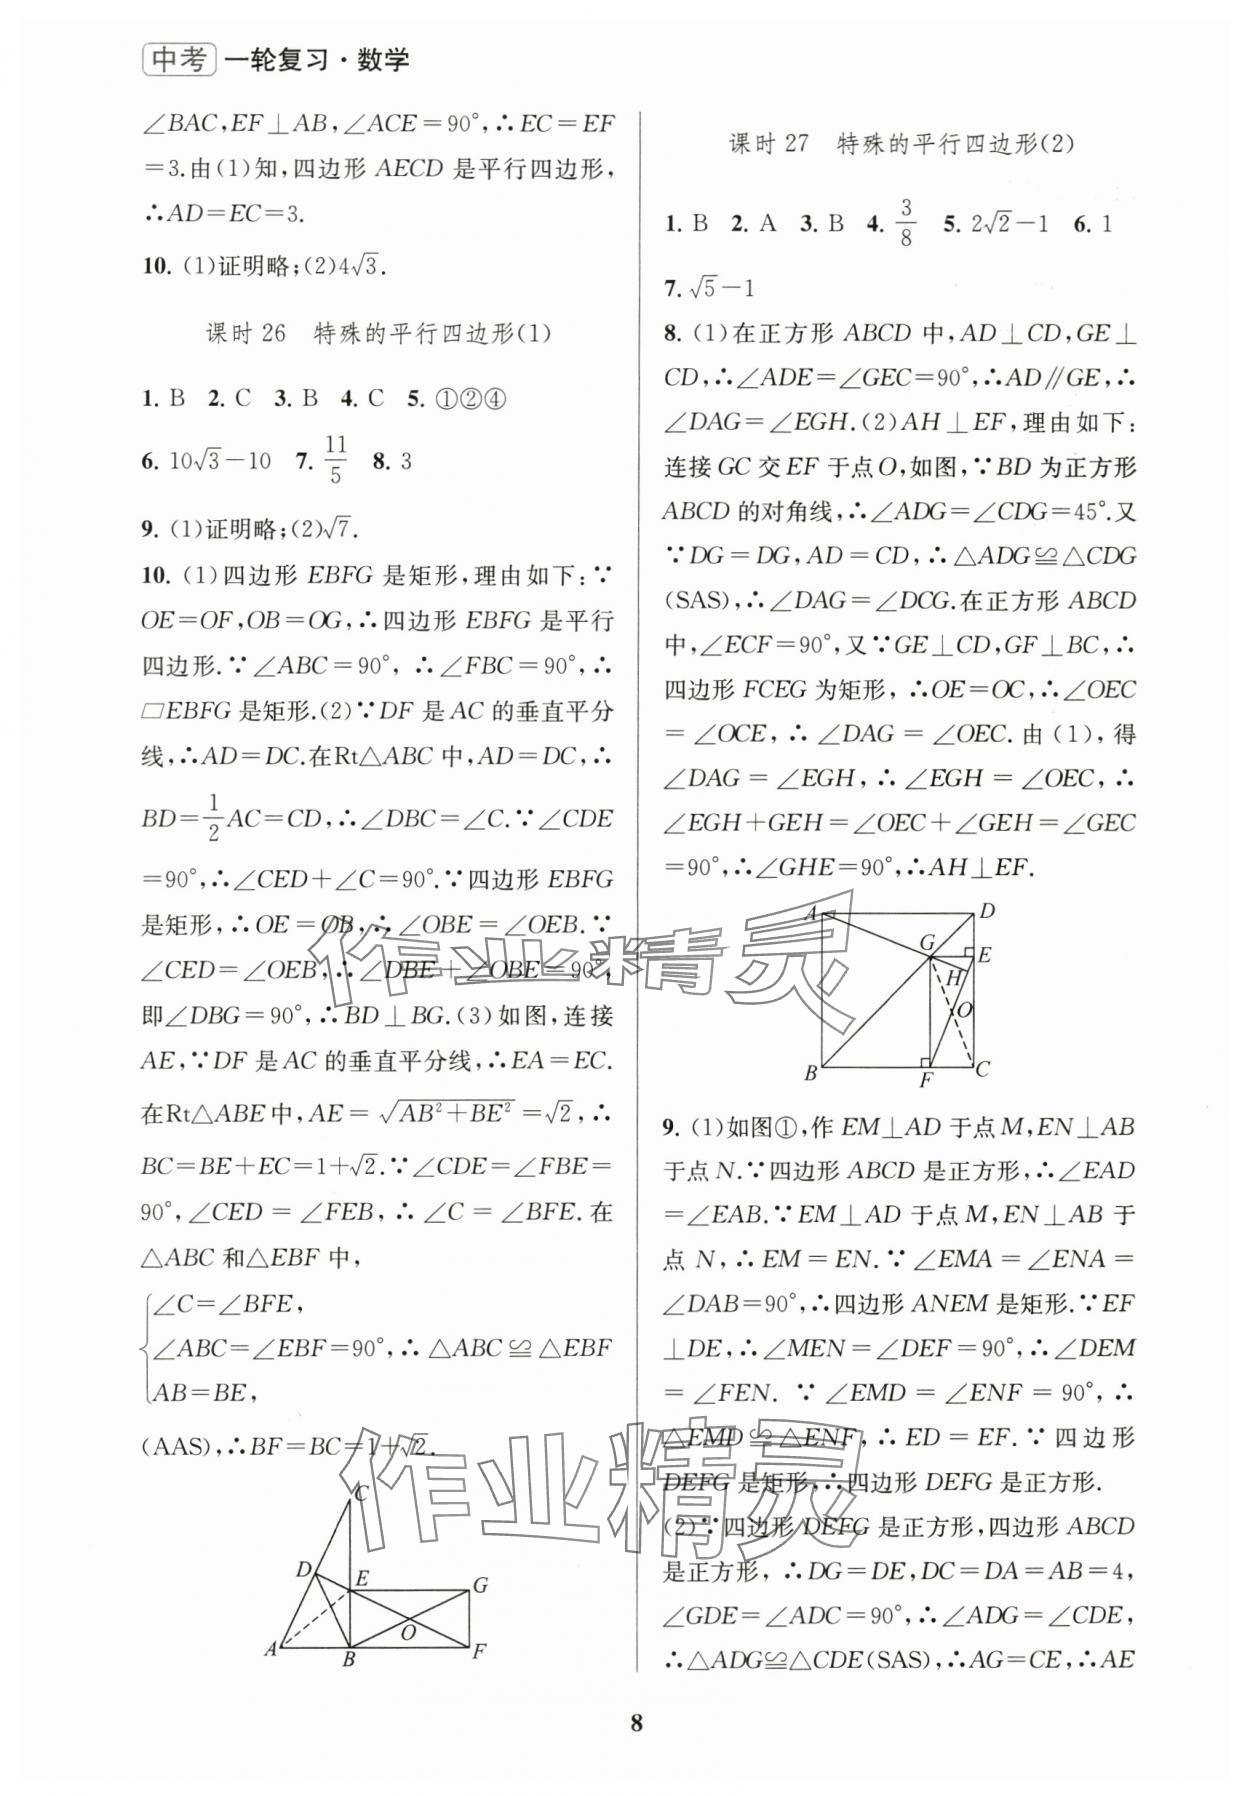 中考 一轮复习·数学
∠BAC,EF⊥AB,∠ACE=90°,∴EC=EF
=3.由(1)知,四边形 AECD 是平行四边形,
∴AD=EC=3.
10. (1)证明略;(2)4√3.
课时 26 特殊的平行四边形(1)
1. B 2. C 3. B 4. C 5. ①②④
6. 10√3-10 7. 11/5 8. 3
9. (1)证明略;(2)√7.
10. (1)四边形 EBFG 是矩形,理由如下:∵
OE=OF,OB=OG,∴四边形 EBFG 是平行
四边形.∵∠ABC=90°,∴∠FBC=90°,∴
▱EBFG 是矩形.(2)∵DF 是 AC 的垂直平分
线,∴AD=DC.在Rt△ABC 中,AD=DC,∴
BD=1/2AC=CD,∴∠DBC=∠C.∵∠CDE
=90°,∴∠CED+∠C=90°.∵四边形 EBFG
是矩形,∴OE=OB,∴∠OBE=∠OEB.∵
∠CED=∠OEB,∴∠DBE+∠OBE=90°,
即∠DBG=90°,∴BD⊥BG.(3)如图,连接
AE,∵DF 是 AC 的垂直平分线,∴EA=EC.
在Rt△ABE中,AE=√(AB²+BE²)=√2,∴
BC=BE+EC=1+√2.∵∠CDE=∠FBE=
90°,∠CED=∠FEB,∴∠C=∠BFE.在
△ABC 和△EBF 中,
∠C=∠BFE,
∠ABC=∠EBF=90°,∴△ABC≌△EBF
AB=BE,
(AAS),∴BF=BC=1+√2.
C
D
E
G
O
A
B
F
课时 27 特殊的平行四边形(2)
1. B 2. A 3. B 4. 3/8 5. 2√2-1 6. 1
7. √5-1
8. (1)在正方形 ABCD 中,AD⊥CD,GE⊥
CD,∴∠ADE=∠GEC=90°,∴AD∥GE,∴
∠DAG=∠EGH.(2)AH⊥EF,理由如下:
连接GC交EF于点O,如图,∵BD 为正方形
ABCD 的对角线,∴∠ADG=∠CDG=45°.又
∵DG=DG,AD=CD,∴△ADG≌△CDG
(SAS),∴∠DAG=∠DCG.在正方形 ABCD
中,∠ECF=90°,又∵GE⊥CD,GF⊥BC,∴
四边形 FCEG 为矩形,∴OE=OC,∴∠OEC
=∠OCE,∴∠DAG=∠OEC.由(1),得
∠DAG=∠EGH,∴∠EGH=∠OEC,∴
∠EGH+GEH=∠OEC+∠GEH=∠GEC
=90°,∴∠GHE=90°,∴AH⊥EF.
A
D
G
E
H
O
B
F
C
9. (1)如图①,作 EM⊥AD 于点 M,EN⊥AB
于点 N.∵四边形 ABCD 是正方形,∴∠EAD
=∠EAB.∵EM⊥AD 于点 M,EN⊥AB 于
点 N,∴EM=EN.∵∠EMA=∠ENA=
∠DAB=90°,∴四边形 ANEM 是矩形.∵EF
⊥DE,∴∠MEN=∠DEF=90°,∴∠DEM
=∠FEN.∵∠EMD=∠ENF=90°,∴
△EMD≌△ENF,∴ED=EF.∵四边形
DEFG 是矩形,∴四边形 DEFG 是正方形.
(2)∵四边形 DEFG 是正方形,四边形 ABCD
是正方形,∴DG=DE,DC=DA=AB=4,
∠GDE=∠ADC=90°,∴∠ADG=∠CDE,
∴△ADG≌△CDE(SAS),∴AG=CE,∴AE
作业精灵
作业精灵
8